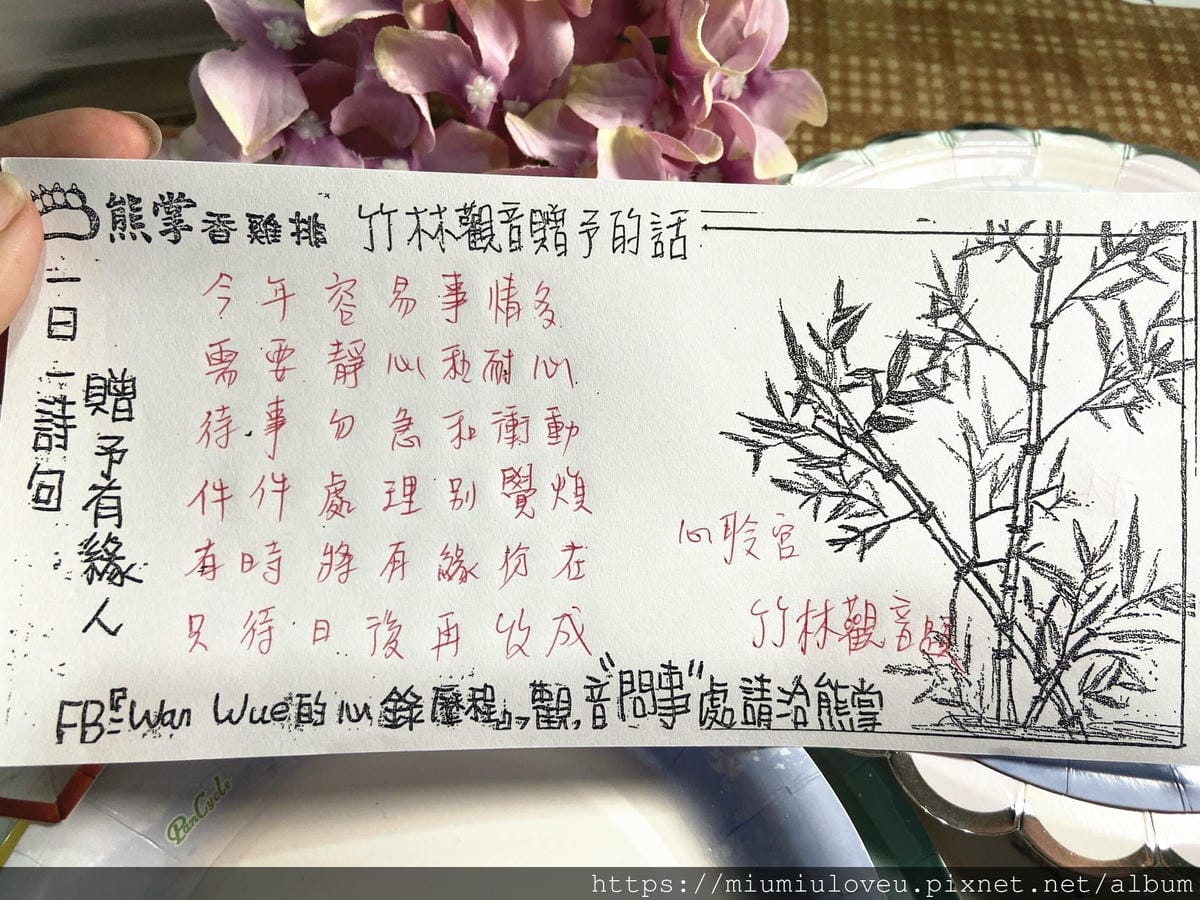 熊掌香雞排 竹林觀音贈予的話
一日一詩句
贈予有緣人
今年容易事情多
需要靜心和耐心
待事勿急和衝動
件件處理別覺煩
有時將有緣份在
只待日後再收成
心聆宮
竹林觀音題
FB:『Wan Wue的心錄歷程』觀音"問事"處請洽熊掌
PanCycle
https://miumiuloveu.pixnet.net/album